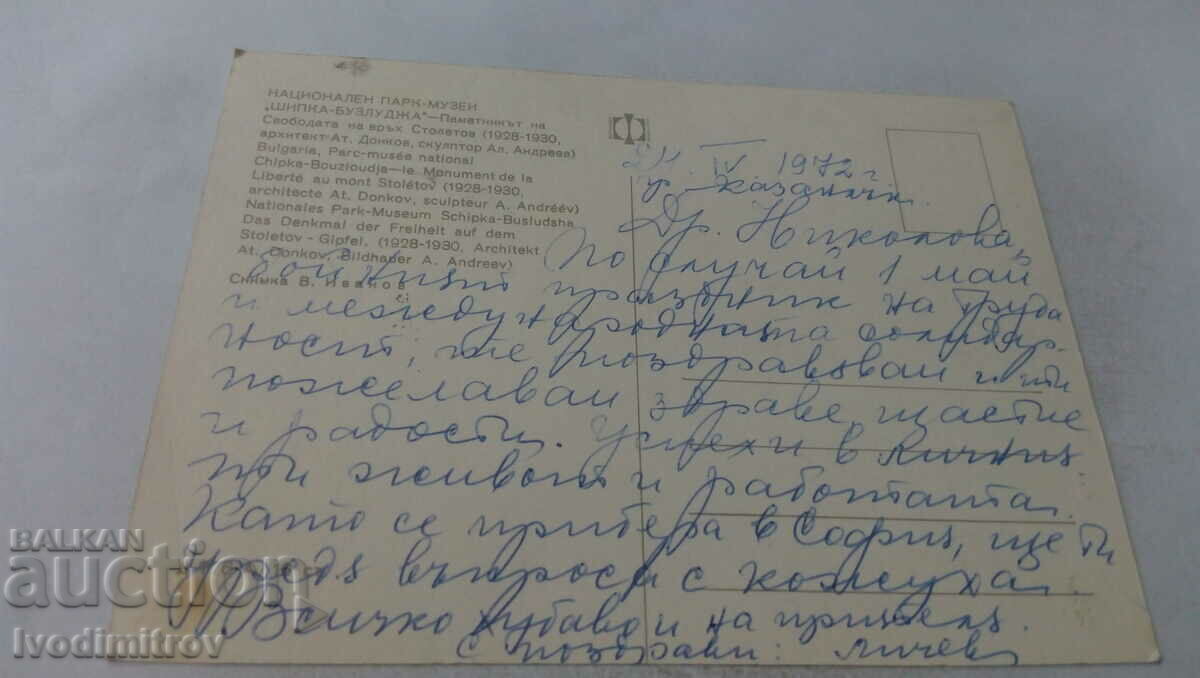 НАЦИОНАЛЕН ПАРК-МУЗЕЙ
„ШИПКА-БУЗЛУДЖА"—Паметникът на
Свободата на връх Столетов (1928-1930,
архитект-Ат. Донков, скулптор Ал. Андреев)
Bulgaria, Parc-musée national
Chipka-Bouzloudja—le Monument de la
Liberté au mont Stolétov (1928-1930,
architecte At. Donkov, sculpteur A. Andréév)
Nationales Park-Museum Schipka-Busludsha
Das Denkmal der Freiheit auf dem
Stoletov - Gipfel, (1928-1930, Architekt
At. Donkov, Bildhauer A. Andreev)
Снимка В. Иванов
IV 1972 г.
гр. Казанлък
Др. Николова,
По случай 1 май
празник на труда
и международната солидар-
ност, те поздравявам и ти
пожелавам здраве, щастие
и радости. Успехи в личния
ти живот и работата.
Като се прибера в София, ще ти
въпроса с кожуха.
Всичко хубаво и на приятеля.
С поздрави: Личев
BALKAN
auction
ivodimitrov